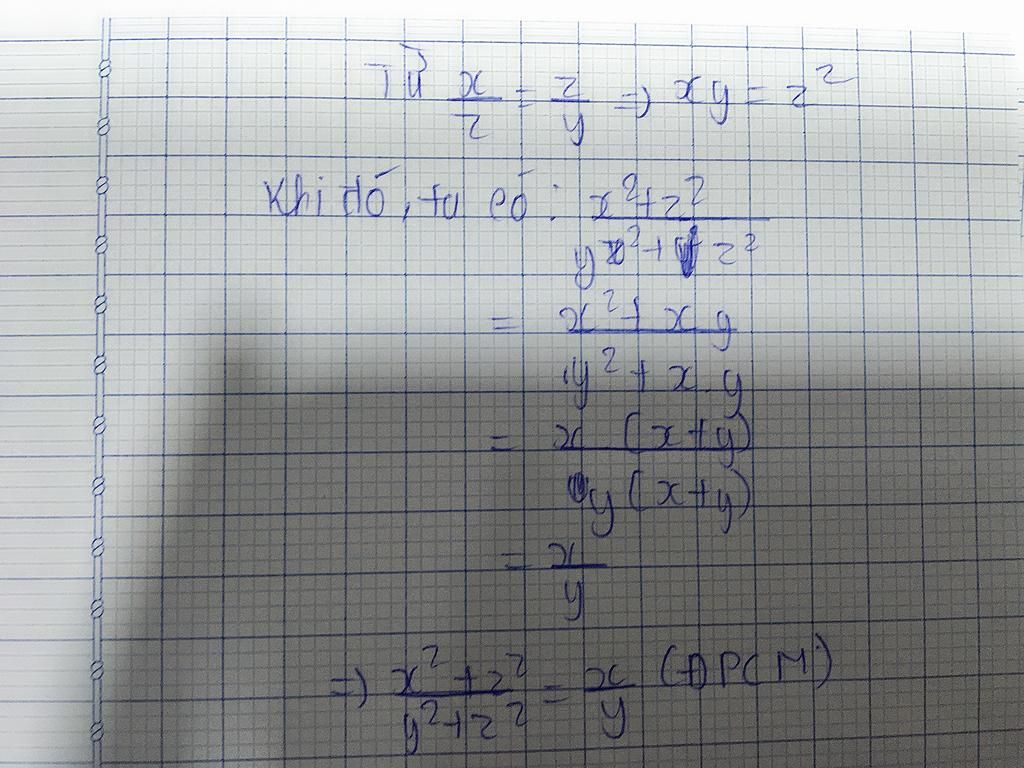 Từ x/z = z/y => xy = z²
Khi đó, ta có: x²+z²
y²+z²
= x²+xy
y²+xy
= x(x+y)
y(x+y)
= x
y
=> x²+z²/y²+z² = x/y (ĐPCM)